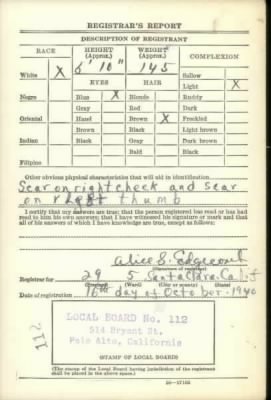 REGISTRAR'S REPORT
DESCRIPTION OF REGISTRANT
RACE
HEIGHT (Approx.)
WEIGHT (Approx.)
COMPLEXION
White X
6' 10"
145
Sallow
EYES
HAIR
Light X
Negro
Blue X
Blonde
Ruddy
Gray
Red
Dark
Oriental
Hazel
Brown X
Freckled
Brown
Black
Light brown
Indian
Black
Gray
Dark brown
Bald
Black
Filipino
Other obvious physical characteristics that will aid in identification
Scar on right cheek and scar
on right thumb
I certify that my answers are true; that the person registered has read or has had
read to him his own answers; that I have witnessed his signature or mark and that
all of his answers of which I have knowledge are true, except as follows:
Alice S. Edgecomb
(Signature of registrar)
Registrar for 29 5 Santa Clara Calif
(Precinct) (Ward) (City or county) (State)
Date of registration 16th day of October - 1940
LOCAL BOARD No. 112
514 Bryant St.
Palo Alto, California
112
(STAMP OF LOCAL BOARD)
(The stamp of the Local Board having jurisdiction of the registrant
shall be placed in the above space.)